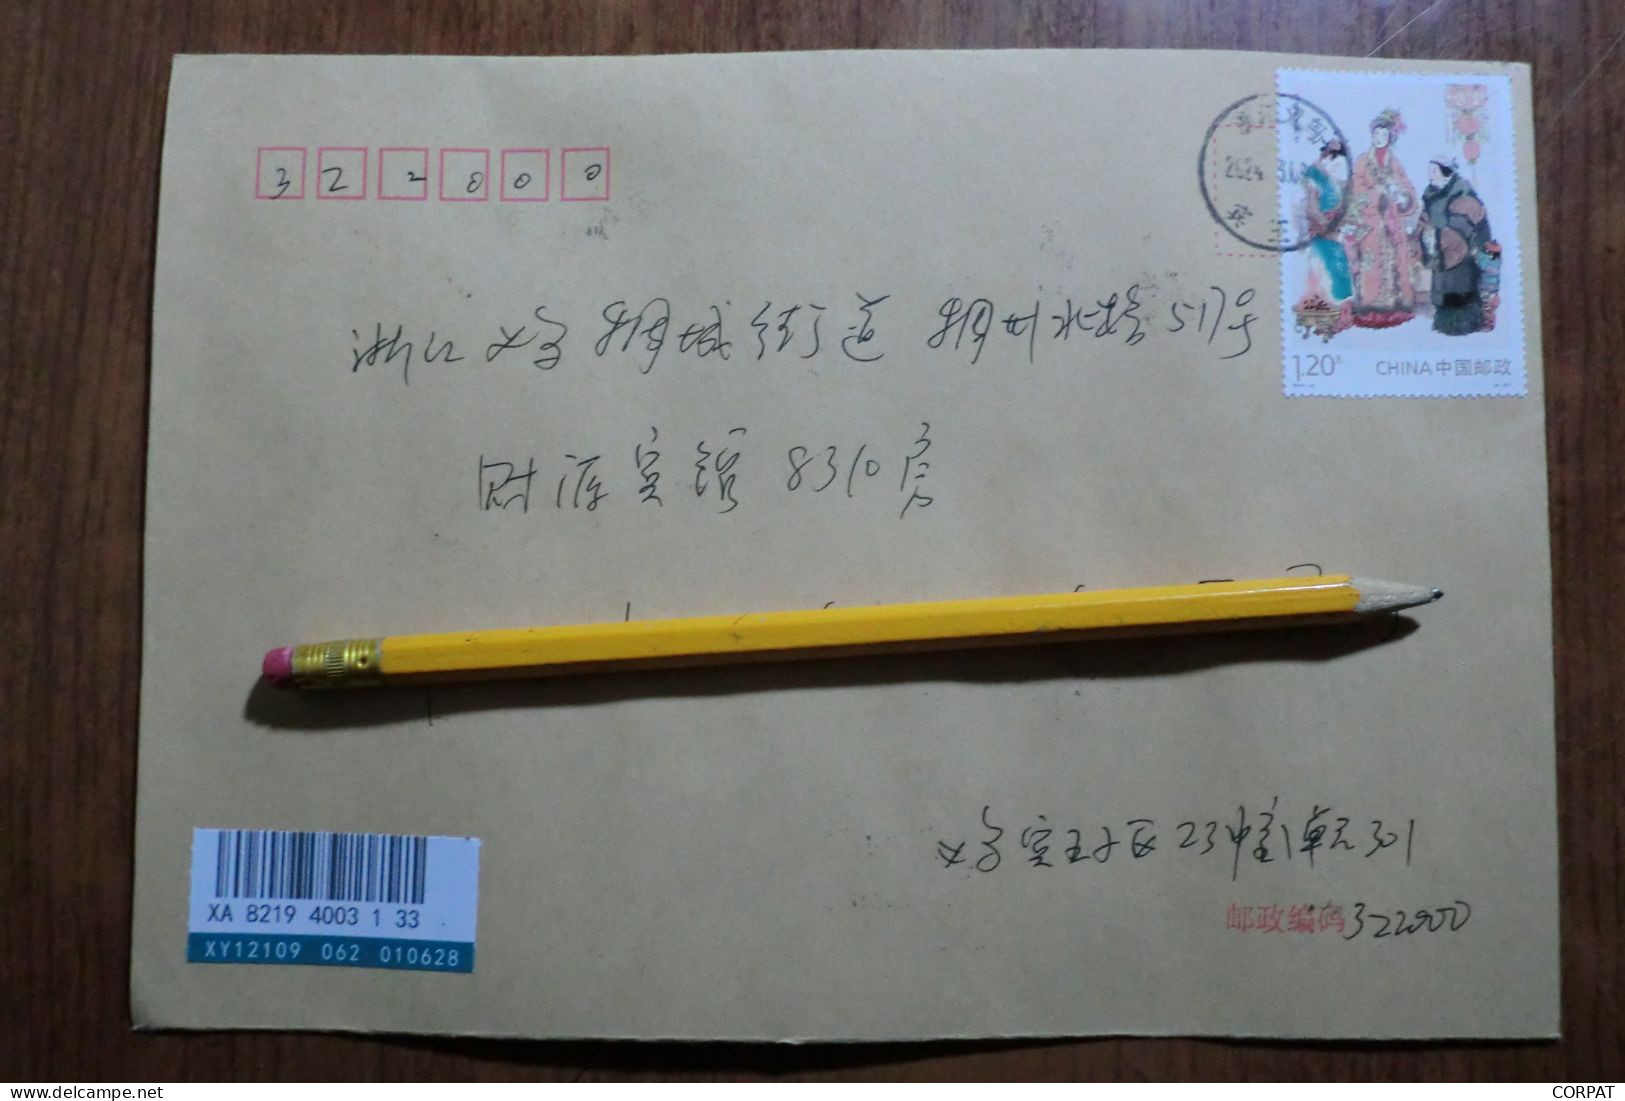 322000
浙江义乌 稠城街道 稠州北路517号
财源宾馆 8310房
1.20元
CHINA中国邮政
2024
宾王
义乌宾王小区23幢1单元301
邮政编码322000
XA 8219 4003 1 33
XY12109 062 010628
CORPAT